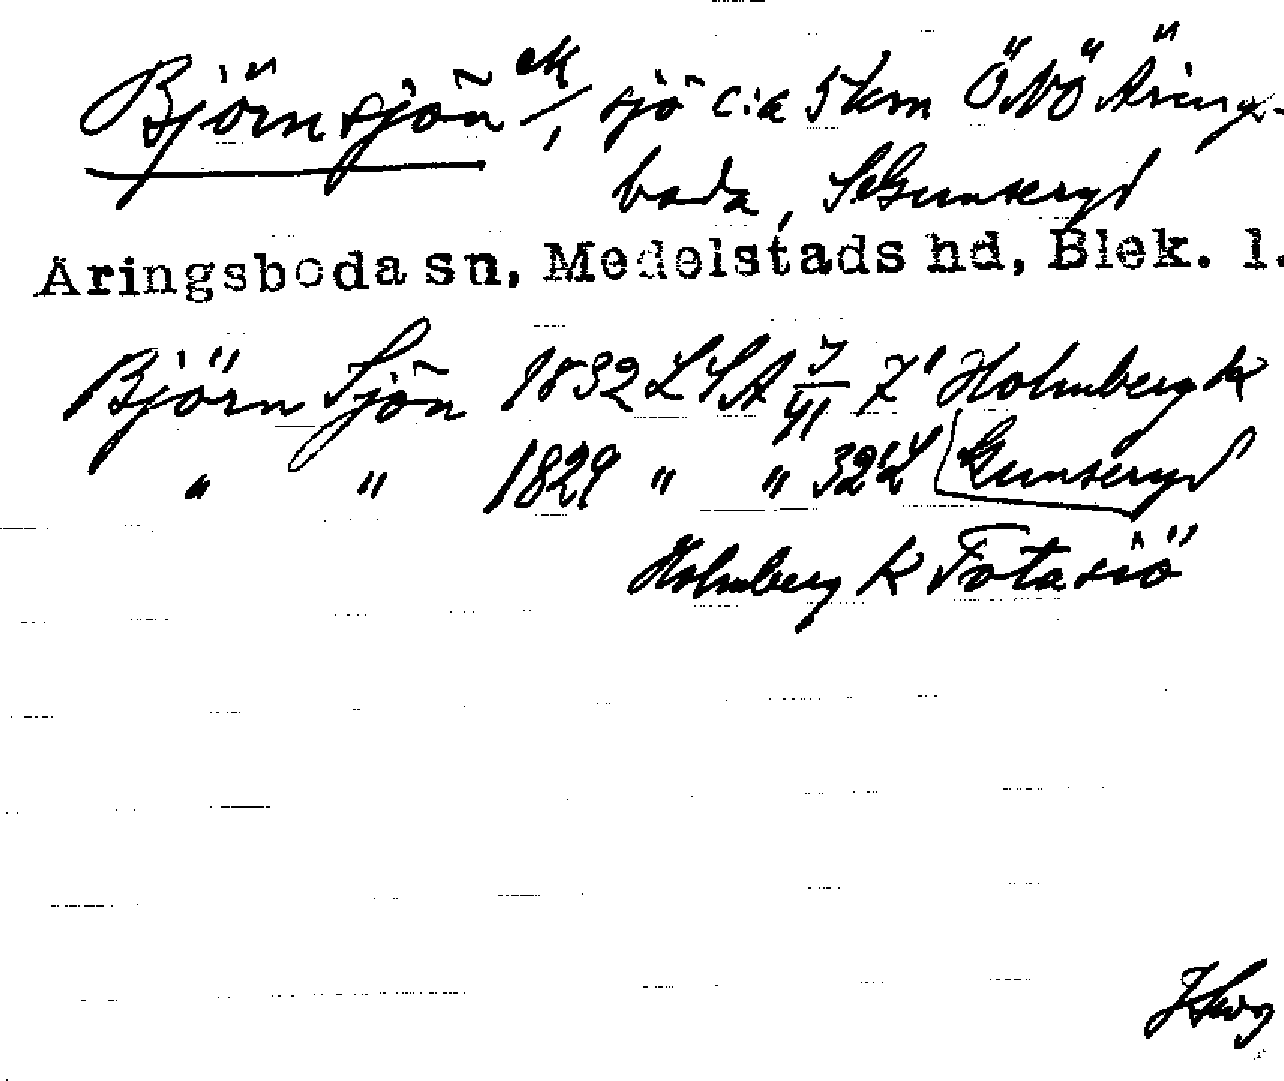 Björnsjön ek/, sjö c:a 5 km ÖNÖ Årings-
boda, S Gunseryd
Åringsboda sn, Medelstads hd, Blek. l.
Björn Sjön 1832 LSA J/VI 7¹ Holmberg k
" " 1829 " " 32² L Gunseryd
Holmberg k Fotasiö